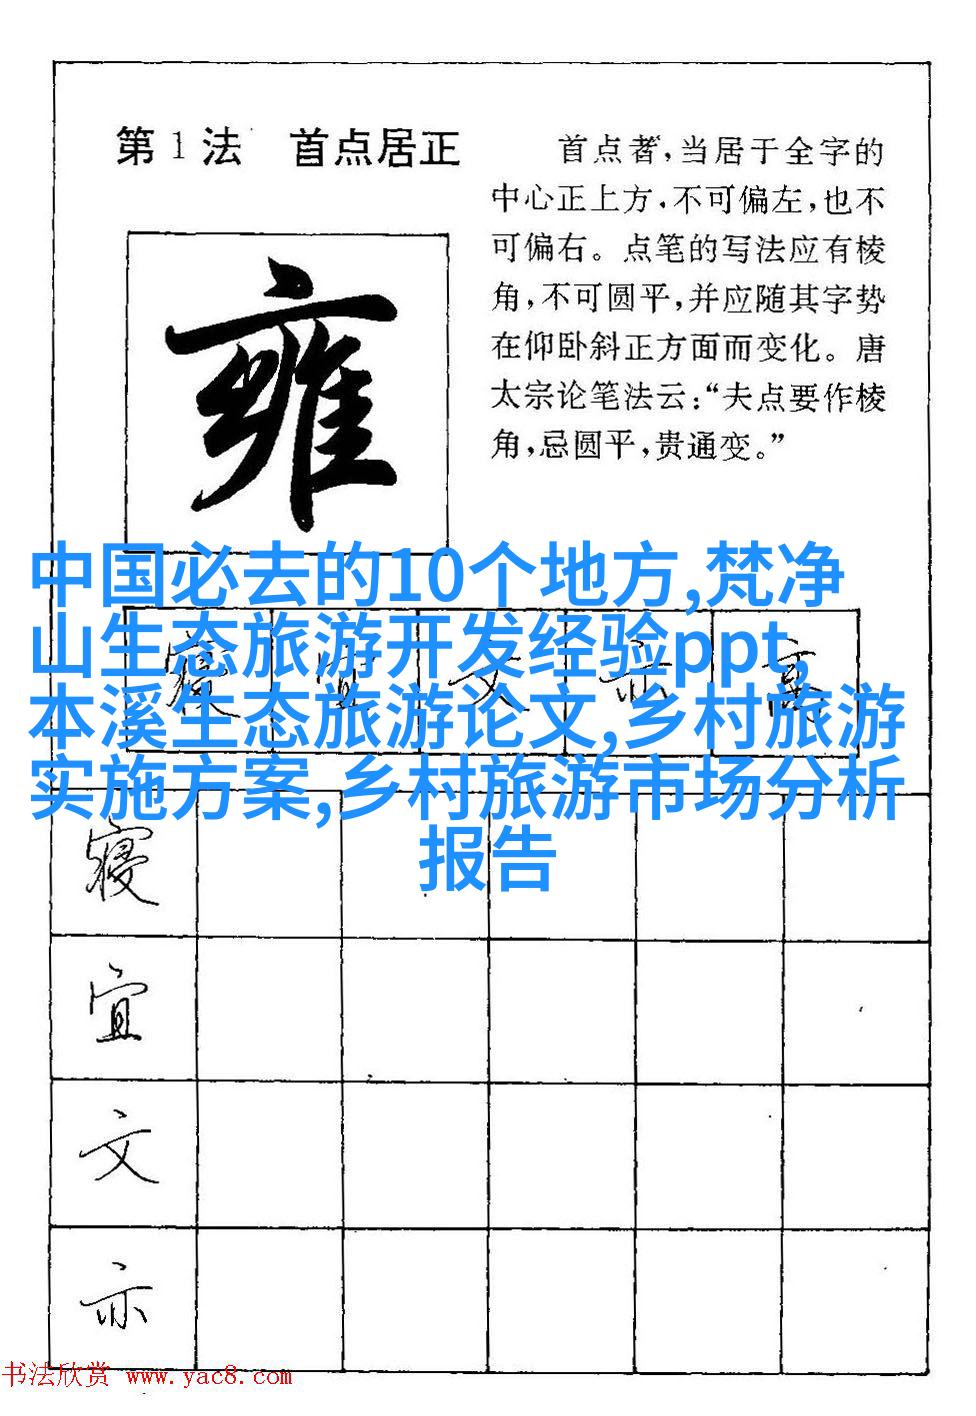 第1法 首点居正
首点者,当居于全字的
中心正上方,不可偏左,也不
可偏右。点笔的写法应有棱
角,不可圆平,并应随其字势
在仰卧斜正方面而变化。唐
太宗论笔法云:“夫点要作棱
角,忌圆平,贵通变。”
雍
中国必去的10个地方,梵净
山生态旅游开发经验ppt,
本溪生态旅游论文,乡村旅游
实施方案,乡村旅游市场分析
报告
寝 宜 文 亦 高
寝
宜
文
亦
书法欣赏 www.yac8.com